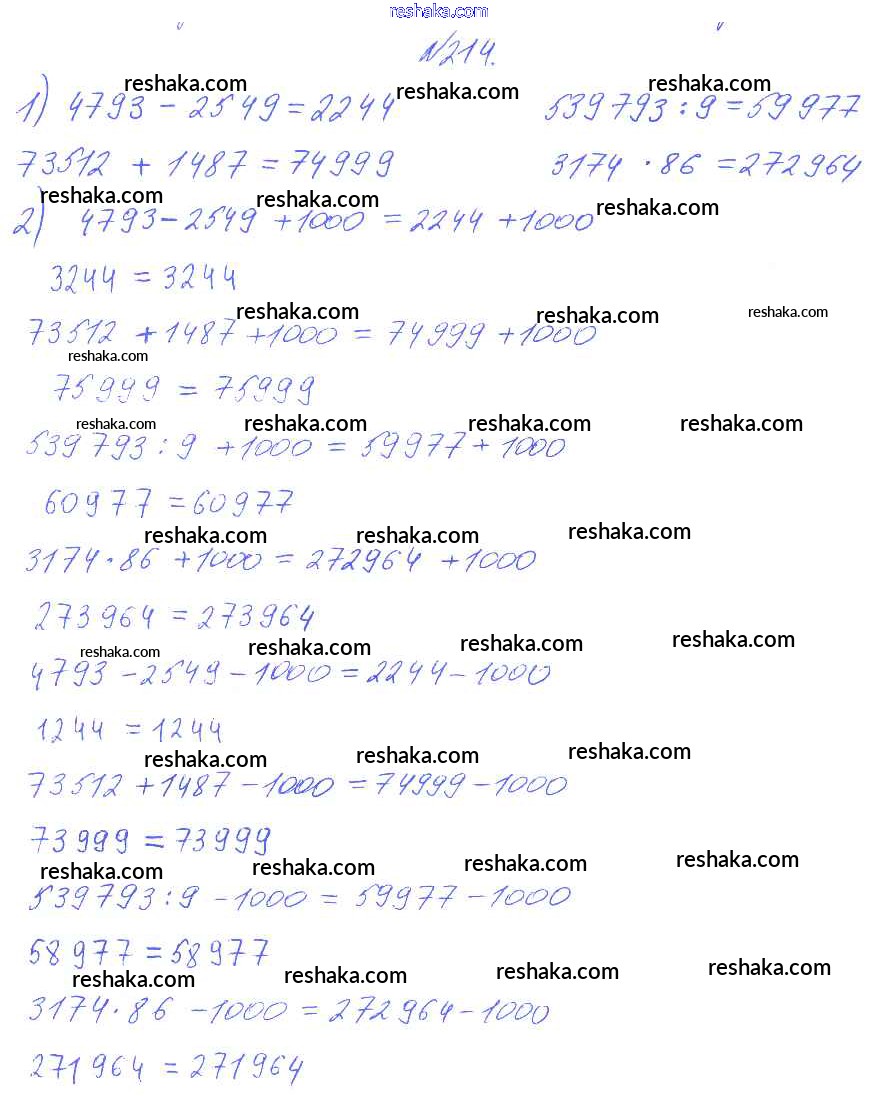 reshaka.com
№214.
reshaka.com reshaka.com reshaka.com
1) 4793 - 2549 = 2244 539793 : 9 = 59977
73512 + 1487 = 74999 3174 · 86 = 272964
reshaka.com reshaka.com reshaka.com
2) 4793 - 2549 + 1000 = 2244 + 1000
3244 = 3244
reshaka.com reshaka.com reshaka.com
73512 + 1487 + 1000 = 74999 + 1000
reshaka.com
75999 = 75999
reshaka.com reshaka.com reshaka.com reshaka.com
539793 : 9 + 1000 = 59977 + 1000
60977 = 60977
reshaka.com reshaka.com reshaka.com
3174 · 86 + 1000 = 272964 + 1000
273964 = 273964
reshaka.com reshaka.com reshaka.com reshaka.com
4793 - 2549 - 1000 = 2244 - 1000
1244 = 1244
reshaka.com reshaka.com reshaka.com
73512 + 1487 - 1000 = 74999 - 1000
73999 = 73999
reshaka.com reshaka.com reshaka.com reshaka.com
539793 : 9 - 1000 = 59977 - 1000
58977 = 58977
reshaka.com reshaka.com reshaka.com reshaka.com
3174 · 86 - 1000 = 272964 - 1000
271964 = 271964